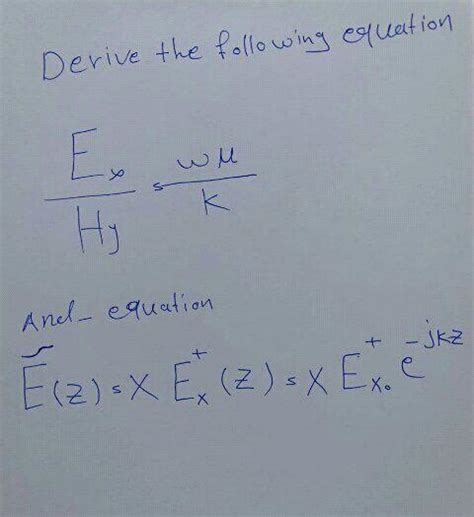 Derive the following equation
Ex / Hy = ωμ / k
And - equation
Ẽ(z) = x Ex⁺(z) = x Ex₀⁺ e^-jkz